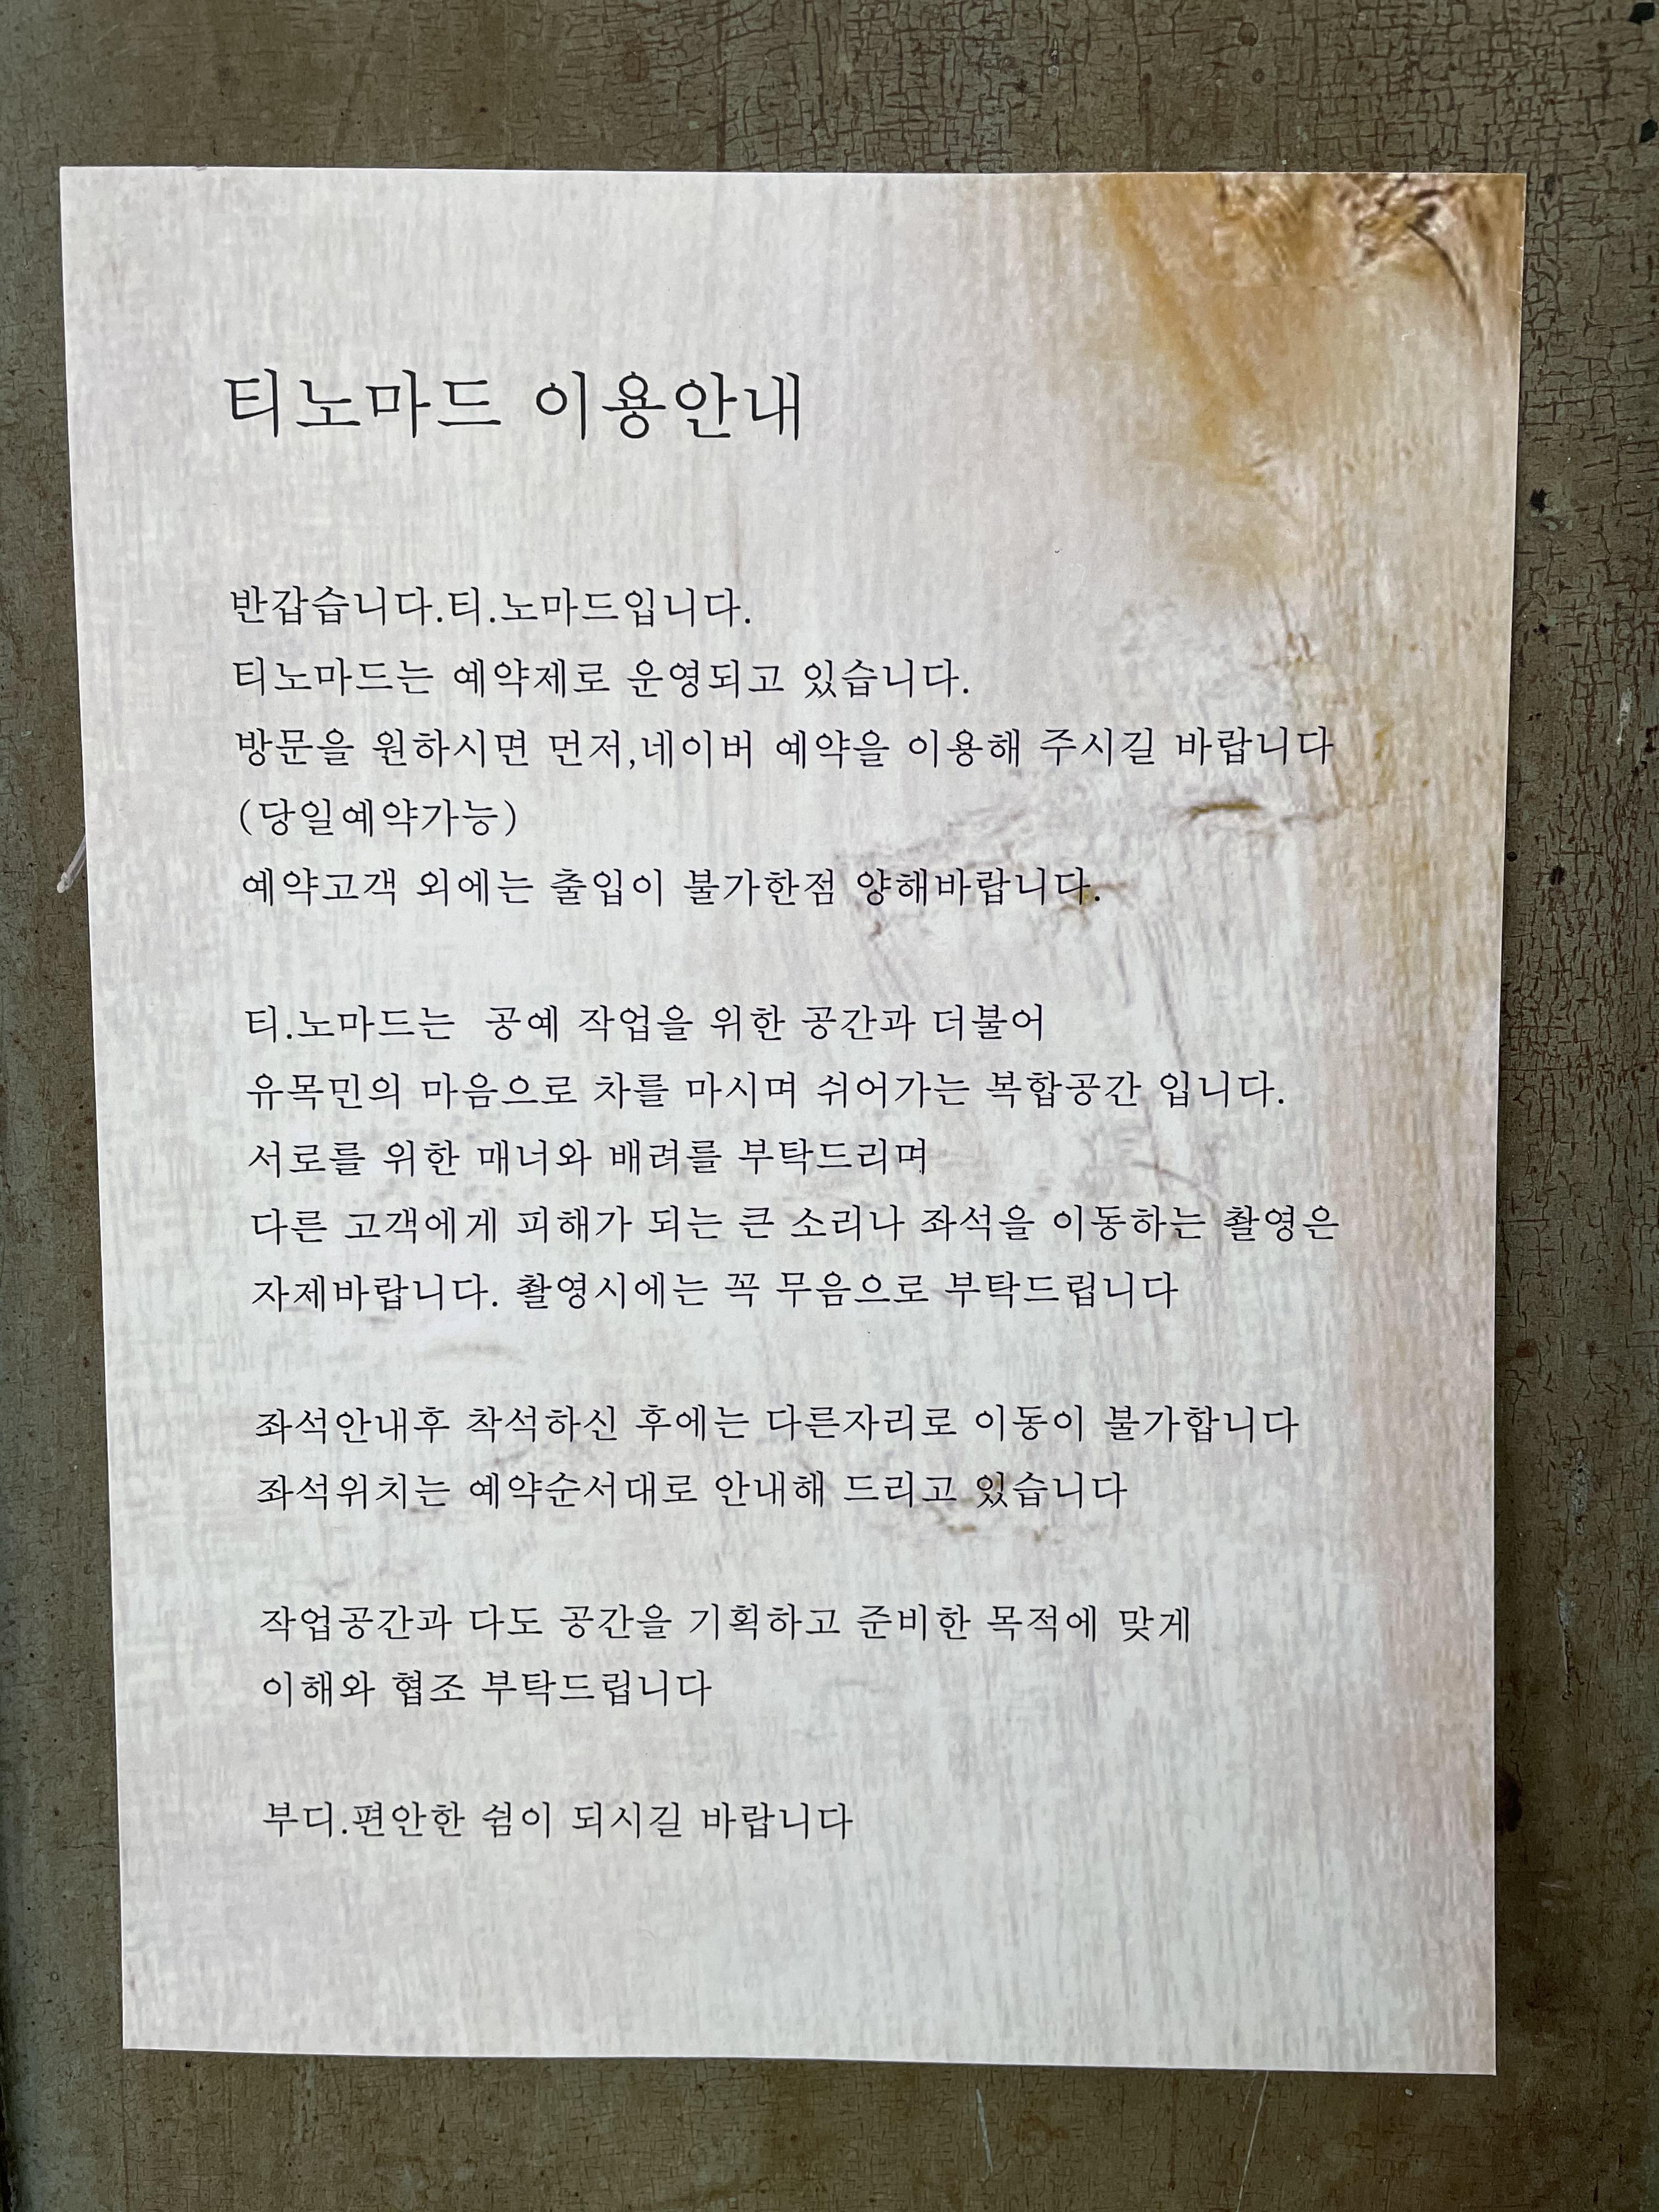 티노마드 이용안내
반갑습니다.티.노마드입니다.
티노마드는 예약제로 운영되고 있습니다.
방문을 원하시면 먼저,네이버 예약을 이용해 주시길 바랍니다
(당일예약가능)
예약고객 외에는 출입이 불가한점 양해바랍니다.
티.노마드는 공예 작업을 위한 공간과 더불어
유목민의 마음으로 차를 마시며 쉬어가는 복합공간 입니다.
서로를 위한 매너와 배려를 부탁드리며
다른 고객에게 피해가 되는 큰 소리나 좌석을 이동하는 촬영은
자제바랍니다. 촬영시에는 꼭 무음으로 부탁드립니다
좌석안내후 착석하신 후에는 다른자리로 이동이 불가합니다
좌석위치는 예약순서대로 안내해 드리고 있습니다
작업공간과 다도 공간을 기획하고 준비한 목적에 맞게
이해와 협조 부탁드립니다
부디.편안한 쉼이 되시길 바랍니다